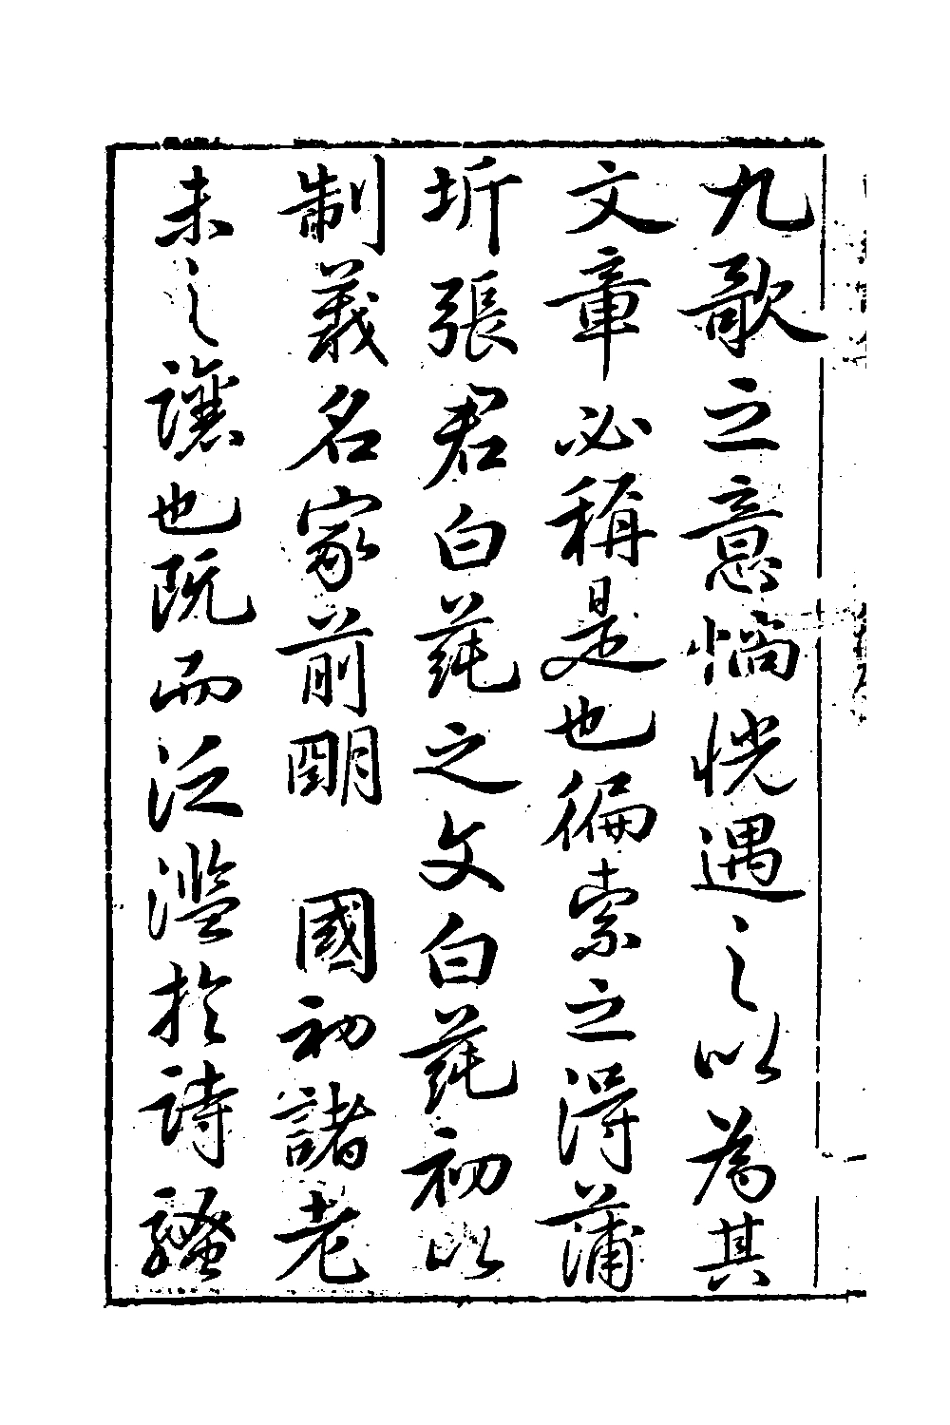 九歌之意惝恍遇之以為其
文章必稱是也徧索之得蒲
圻張君白蒓之文白蒓初以
制義名家前朙　國初諸老
未之讓也既而泛濫於詩騷